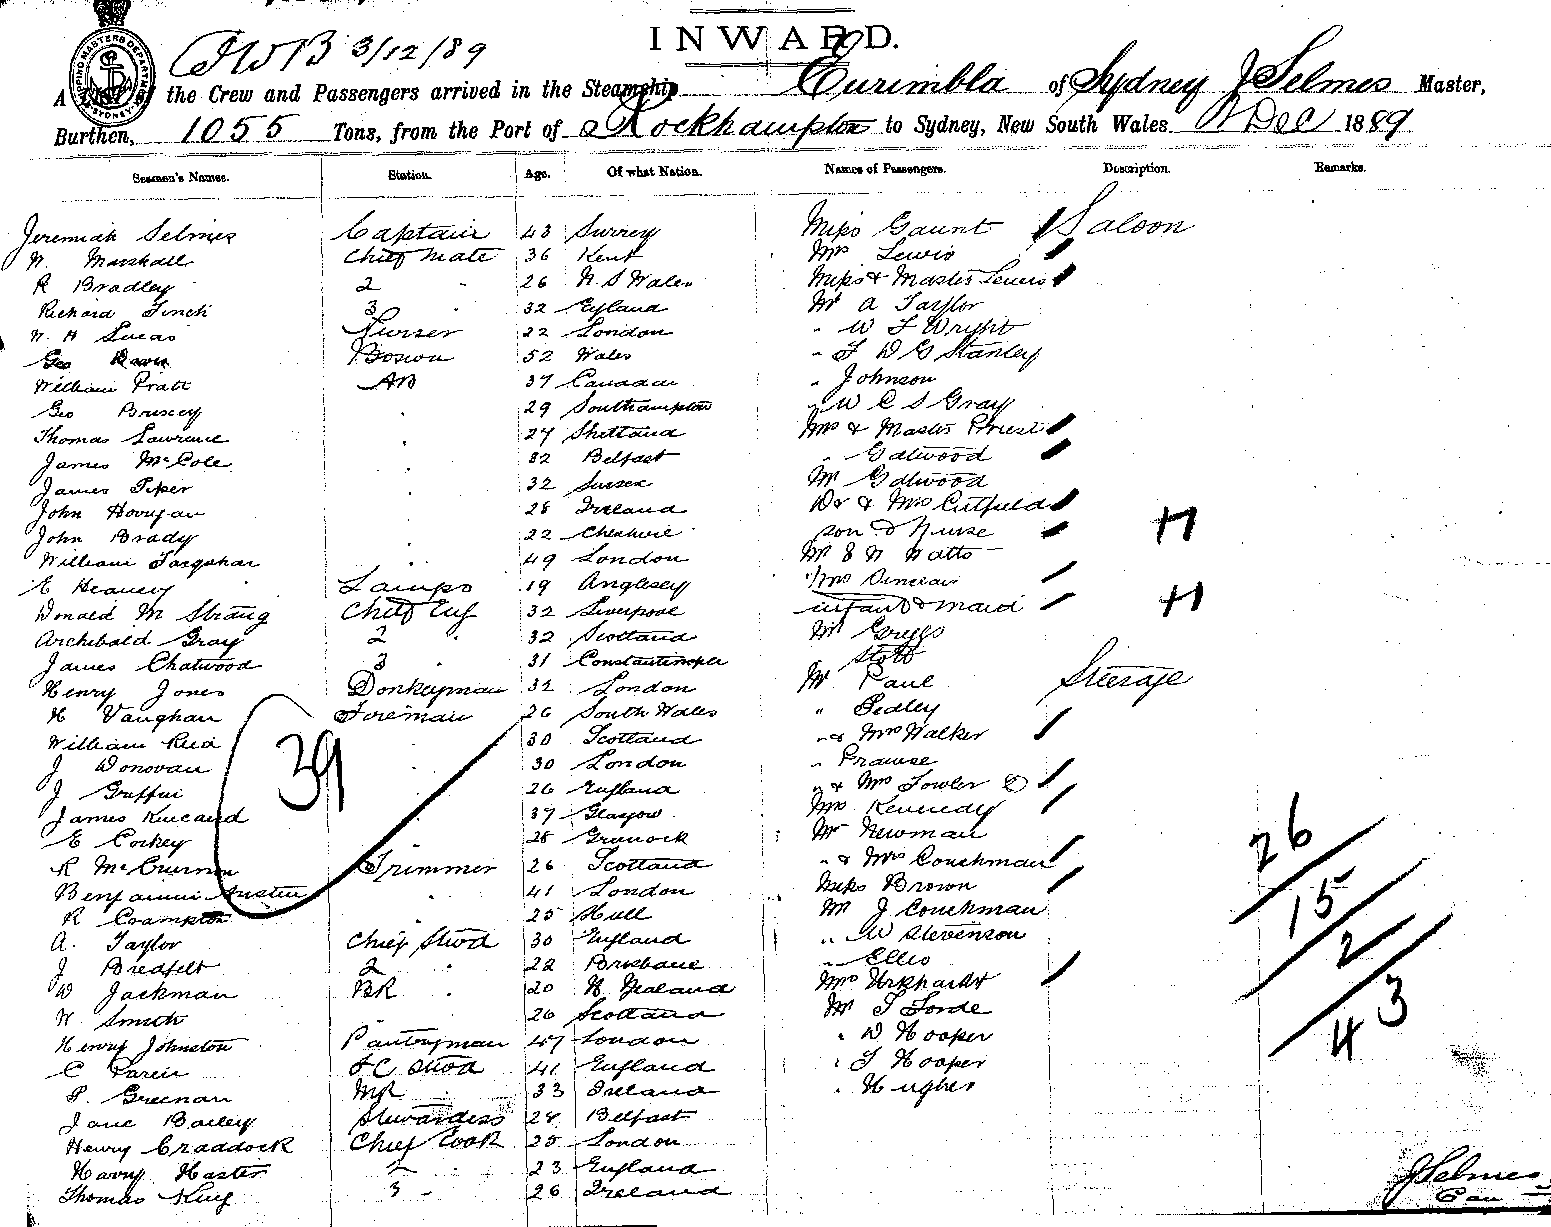 INWARD.
SHIPPING MASTERS DEPARTMENT SYDNEY
3/12/89
A List of the Crew and Passengers arrived in the Steamship Eurimbla of Sydney J Selmes Master,
Burthen, 1055 Tons, from the Port of Rockhampton to Sydney, New South Wales Dec 1889
Seamen's Names. Station. Age. Of what Nation. Names of Passengers. Description. Remarks.
Jeremiah Selmes Captain 43 Surrey Miss Gaunt Saloon
W Marshall Chief Mate 36 Kent Mrs Lewis
R Bradley 2 " 26 N S Wales Miss & Master Lewis
Richard Finch 3 " 32 England Mr A Taylor
W. H Lucas Purser 22 London " W F Wright
Geo Davis Bosun 52 Wales " F D G Stanley
William Pratt AB 37 Canada " Johnson
Geo Briscey 29 Southampton " W C S Gray
Thomas Lawrence 27 Shetland Mrs & Master Priest
James McCole 32 Belfast " Gatwood
James Piper 32 Sussex Mr Gatwood
John Horrigan 28 Ireland Dr & Mrs Cutfield
John Brady 22 Cheshire son & Nurse H
William Farquhar 49 London Mr E W Watts
E Heaney Lamps 19 Anglesey Mrs Sinclair
Donald M Strang Chief Eng 32 Liverpool infant & maid H
Archibald Gray 2 " 32 Scotland Mr Griggs
James Chatwood 3 " 31 Constantinople Stott
Henry Jones Donkeyman 32 London Mr Paul Steerage
H Vaughan Foreman 26 South Wales " Pedley
William Reid 30 Scotland " & Mrs Walker
J Donovan 30 London " Prause
J Griffin 26 England " & Mrs Fowler
James Kincaid 37 Glasgow Mrs Kennedy
39
E Corkey 28 Greenock Mr Newman
R McCrimmon Trimmer 26 Scotland " & Mrs Couchman
26
Benjamin Austin 41 London Miss Brown
15
R Crampton 25 Hull Mr J Couchman
A. Taylor Chief Stwd 30 England " W Stevenson
2
J Bredfelt 2 " 22 Brisbane " Ellis
W Jackman BR " 20 N Zealand Mrs Urkhardt
W Smith 26 Scotland Mr T Forde
43
Henry Johnston Pantryman 47 London " W Hooper
C Parein F C Stwd 41 England " F Hooper
P. Greenan MR 33 Ireland " Hughes
Jane Bailey Stewardess 28 Belfast
Henry Craddock Chief Cook 25 London
Harry Haster 2 " 23 England
Thomas King 3 " 26 Ireland
J Selmes